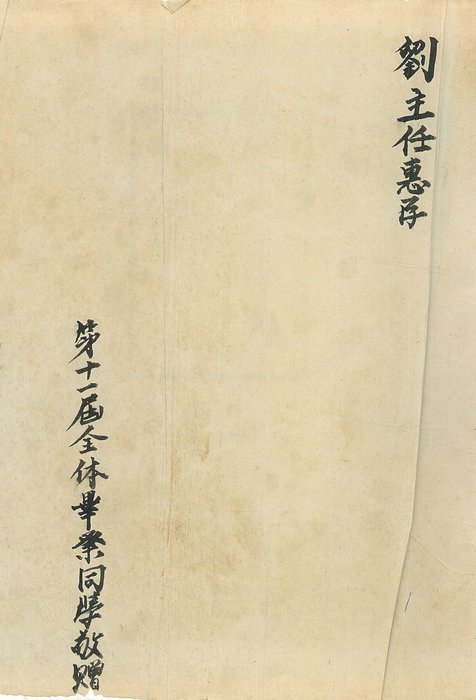 劉主任惠存
第十一屆全体畢業同學敬贈